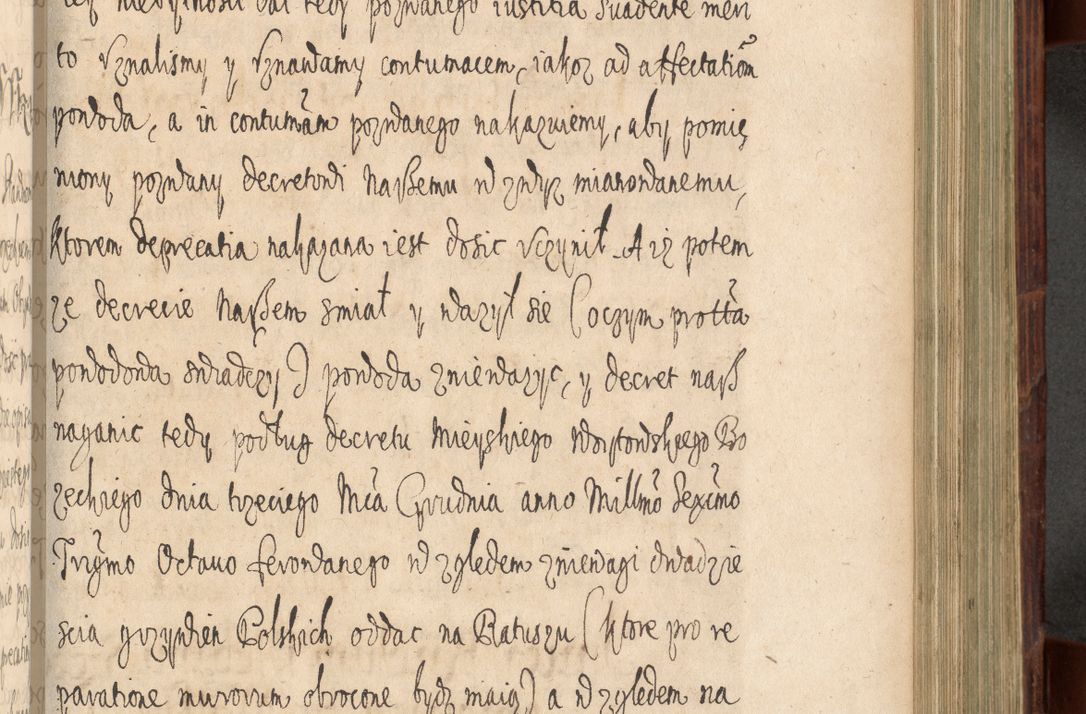 niewinnosci dał tedy pozwanego iustitia Suadente meri
to Vznalismy y Vznawamy contumacem, iakoz ad affectatiom
powoda, a in contumam pozwanego nakazuiemy, aby pomię
niony pozwany decretowi naßemu w zwyz mianowanemu,
ktorem deprecatia nakazana iest dosic Vczynił. A iz potem
ze decrecie naßem smiał y wazył sie (oczym protta
powodowa swiadczy) powoda zniewazyc, y decret naß
naganic tedy podług decretu Mieyskiego Woytowskiego Bo
zeckiego dnia trzeciego Mca Grudnia anno Millmo Sexcmo
Trigmo Octauo ferowanego w zgledem zniewagi dwadzie
scia grzywien Polskich oddac na Ratuszu (ktore pro re
paratione murorum obrocone bydz maią) a w zgledem na